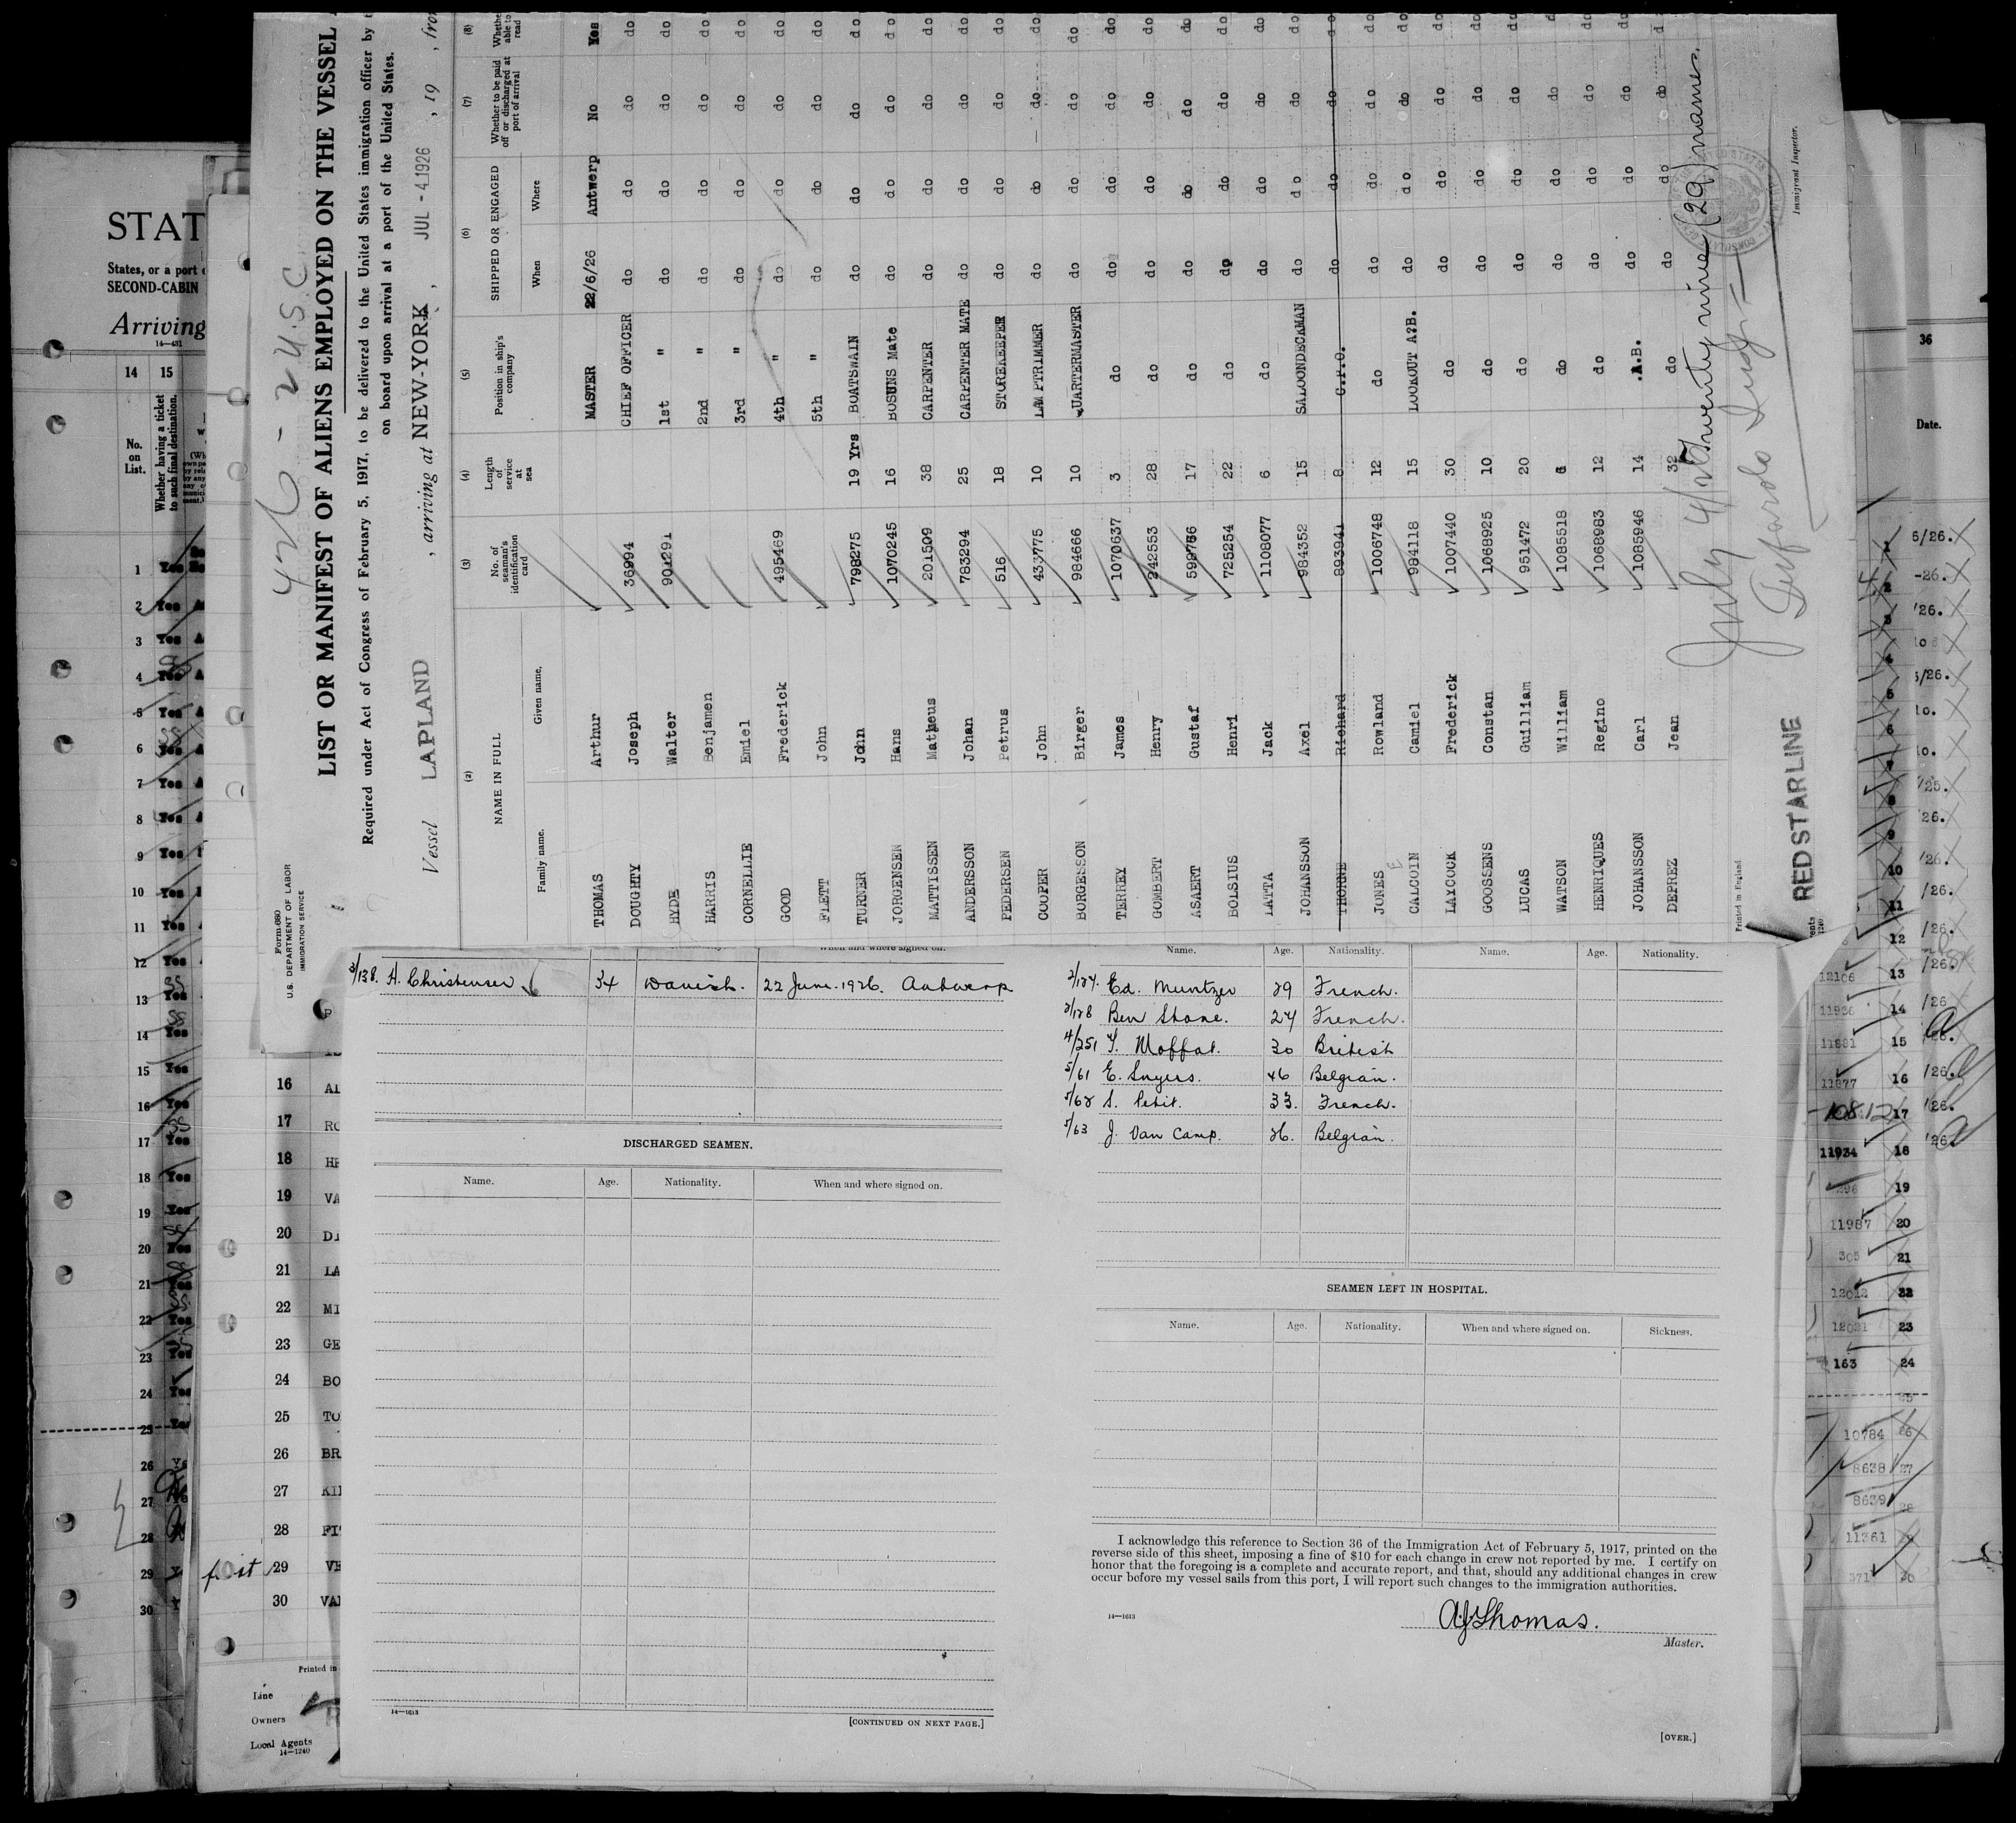 426 - 24.S.C
Form 680
U. S. DEPARTMENT OF LABOR
IMMIGRATION SERVICE
LIST OR MANIFEST OF ALIENS EMPLOYED ON THE VESSEL
Required under Act of Congress of February 5, 1917, to be delivered to the United States immigration officer by
on board upon arrival at a port of the United States.
Vessel LAPLAND , arriving at NEW-YORK , JUL - 4 1926 , 19 , from
(2) (3) (4) (5) (6) (7) (8)
NAME IN FULL No. of seaman's identification card Length of service at sea Position in ship's company SHIPPED OR ENGAGED Whether to be paid off or discharged at port of arrival Whether able to read
Family name. Given name. When Where
THOMAS Arthur MASTER 22/6/26 Antwerp No Yes
DOUGHTY Joseph 36994 CHIEF OFFICER do do do do
HYDE Walter 901291 1st " do do do do
HARRIS Benjamen 2nd " do do do do
CORNELLIE Emiel 3rd " do do do do
GOOD Frederick 495469 4th " do do do do
FLETT John 5th " do do do do
TURNER John 798275 19 Yrs BOATSWAIN do do do do
JORGENSEN Hans 1070245 16 BOSUNS Mate do do do do
MATTISSEN Matheus 201509 38 CARPENTER do do do do
ANDERSSON Johan 783294 25 CARPENTER MATE do do do do
PEDERSEN Petrus 516 18 STOREKEEPER do do do do
COOPER John 433775 10 LAMPTRIMMER do do do do
BORGESSON Birger 984666 10 QUARTERMASTER do do do do
TERREY James 1070637 3 do do do do do
GOMBERT Henry 242553 28 do do do do do
ASAERT Gustaf 599766 17 do do do do do
BOLSIUS Henri 725254 22 do do do do do
LATTA Jack 1108077 6 do do do do do
JOHANSSON Axel 984352 15 SALOONDECKMAN do do do do
THORNE Richard 893941 8 C.P.O. do do do do
JONES Rowland 1006748 12 do do do do do
CALCOIN Camiel 984118 15 LOOKOUT A?B. do do do do
LAYCOCK Frederick 1007440 30 do do do do do
GOOSSENS Constan 1068925 10 do do do do do
LUCAS Guilliam 951472 20 do do do do do
WATSON William 1085518 6 do do do do do
HENRIQUES Regino 1068983 12 do do do do do
JOHANSSON Carl 1085946 14 .A.B. do do do do
DEPREZ Jean 32 do do do do do
July 4/26 Twenty nine (29) names.
Immigrant Inspector.
Printed in England
RED STAR LINE
STAT
States, or a port
SECOND-CABIN
Arriving
14—431
14 15
No. on List.
Whether having a ticket to such final destination.
1 Yes
2 Yes
3 Yes
4 Yes
5 Yes
6 Yes
7 Yes
8 Yes
9 Yes
10 Yes
11 Yes
12 Yes
13 Yes
14 Yes
15 Yes
16 Yes
17 Yes
18 Yes
19 Yes
20 Yes
21 Yes
22 Yes
23 Yes
24 Yes
25 Yes
26
27
28
29
30
16 AL
17 RO
18
19 VA
20 DI
21 LA
22 MI
23 GE
24 BO
25 TO
26 BR
27 KI
28 FI
29 VE
30 VA
Printed in
Line
Owners
Local Agents
14—1240
When and where signed on.
3/138. A. Christensen 34 Danish. 22 June. 1926. Antwerp
DISCHARGED SEAMEN.
Name. Age. Nationality. When and where signed on.
14—1613
[CONTINUED ON NEXT PAGE.]
Name. Age. Nationality. Name. Age. Nationality.
Ed. Muntzer 29 French.
Ben Shone. 24 French.
4/251 Moffat. 30 British
5/61 E. Snyers. 46 Belgian.
5/62 S. Petit. 33. French.
5/63 J. Van Camp. 26. Belgian.
SEAMEN LEFT IN HOSPITAL.
Name. Age. Nationality. When and where signed on. Sickness.
I acknowledge this reference to Section 36 of the Immigration Act of February 5, 1917, printed on the
reverse side of this sheet, imposing a fine of $10 for each change in crew not reported by me. I certify on
honor that the foregoing is a complete and accurate report, and that, should any additional changes in crew
occur before my vessel sails from this port, I will report such changes to the immigration authorities.
14—1613
A.J. Thomas.
Master.
[OVER.]
36
Date.
12106 13
11936 14
11881 15
11877 16
10812 17
11934 18
296 19
11987 20
305 21
12012 22
12021 23
163 24
10784 26
8638 27
8639 28
11361
371